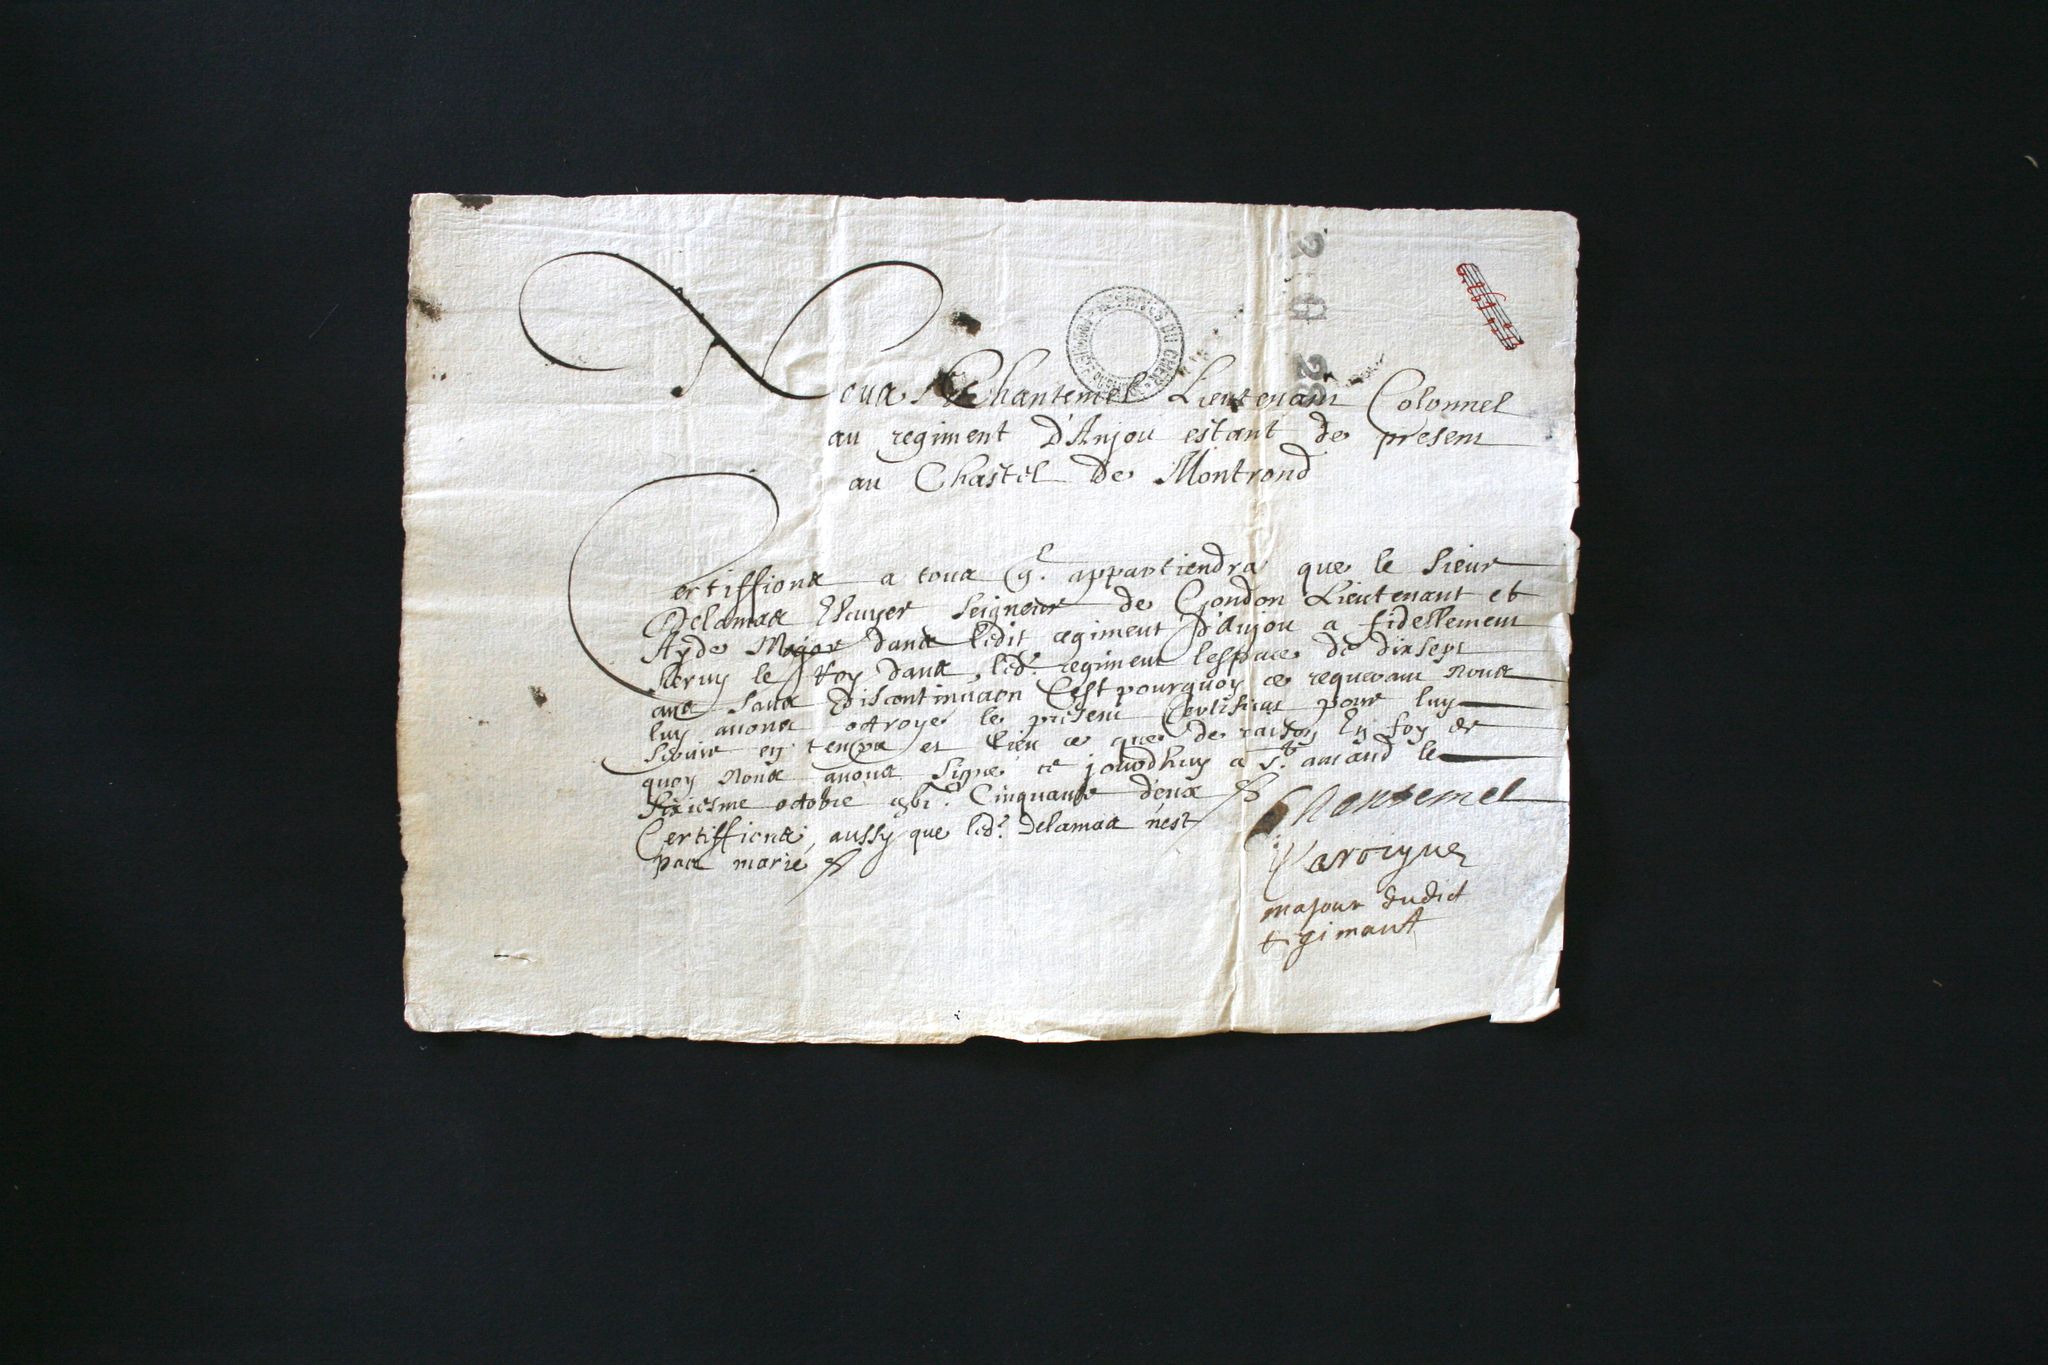 ARCHIVES DU CHER
2 G 28
Nous Chantemel Lieutenant Colonnel
au regiment d'Anjou estant de present
au Chastel de Montrond
Certiffions a tous ql. appartiendra que le sieur
Delamas Escuyer Seigneur de Gondon Lieutenant et
Ayde Major dans ledit regiment d'Anjou a fidellement
servy le Roy dans led. regiment lespace de dixsept
ans sans discontinuaon Cest pourquoy ce requerant Nous
luy avons octroye le present Certificat pour luy
servir en temps et lieu ce que de raison En foy de
quoy Nous avons signe ce jourdhuy a St. amand le
sixiesme octobre gbic. Cinquante deux
Certiffions aussy que led. Delamas nest
pas marie
Chantemel
majour dudict
regimant